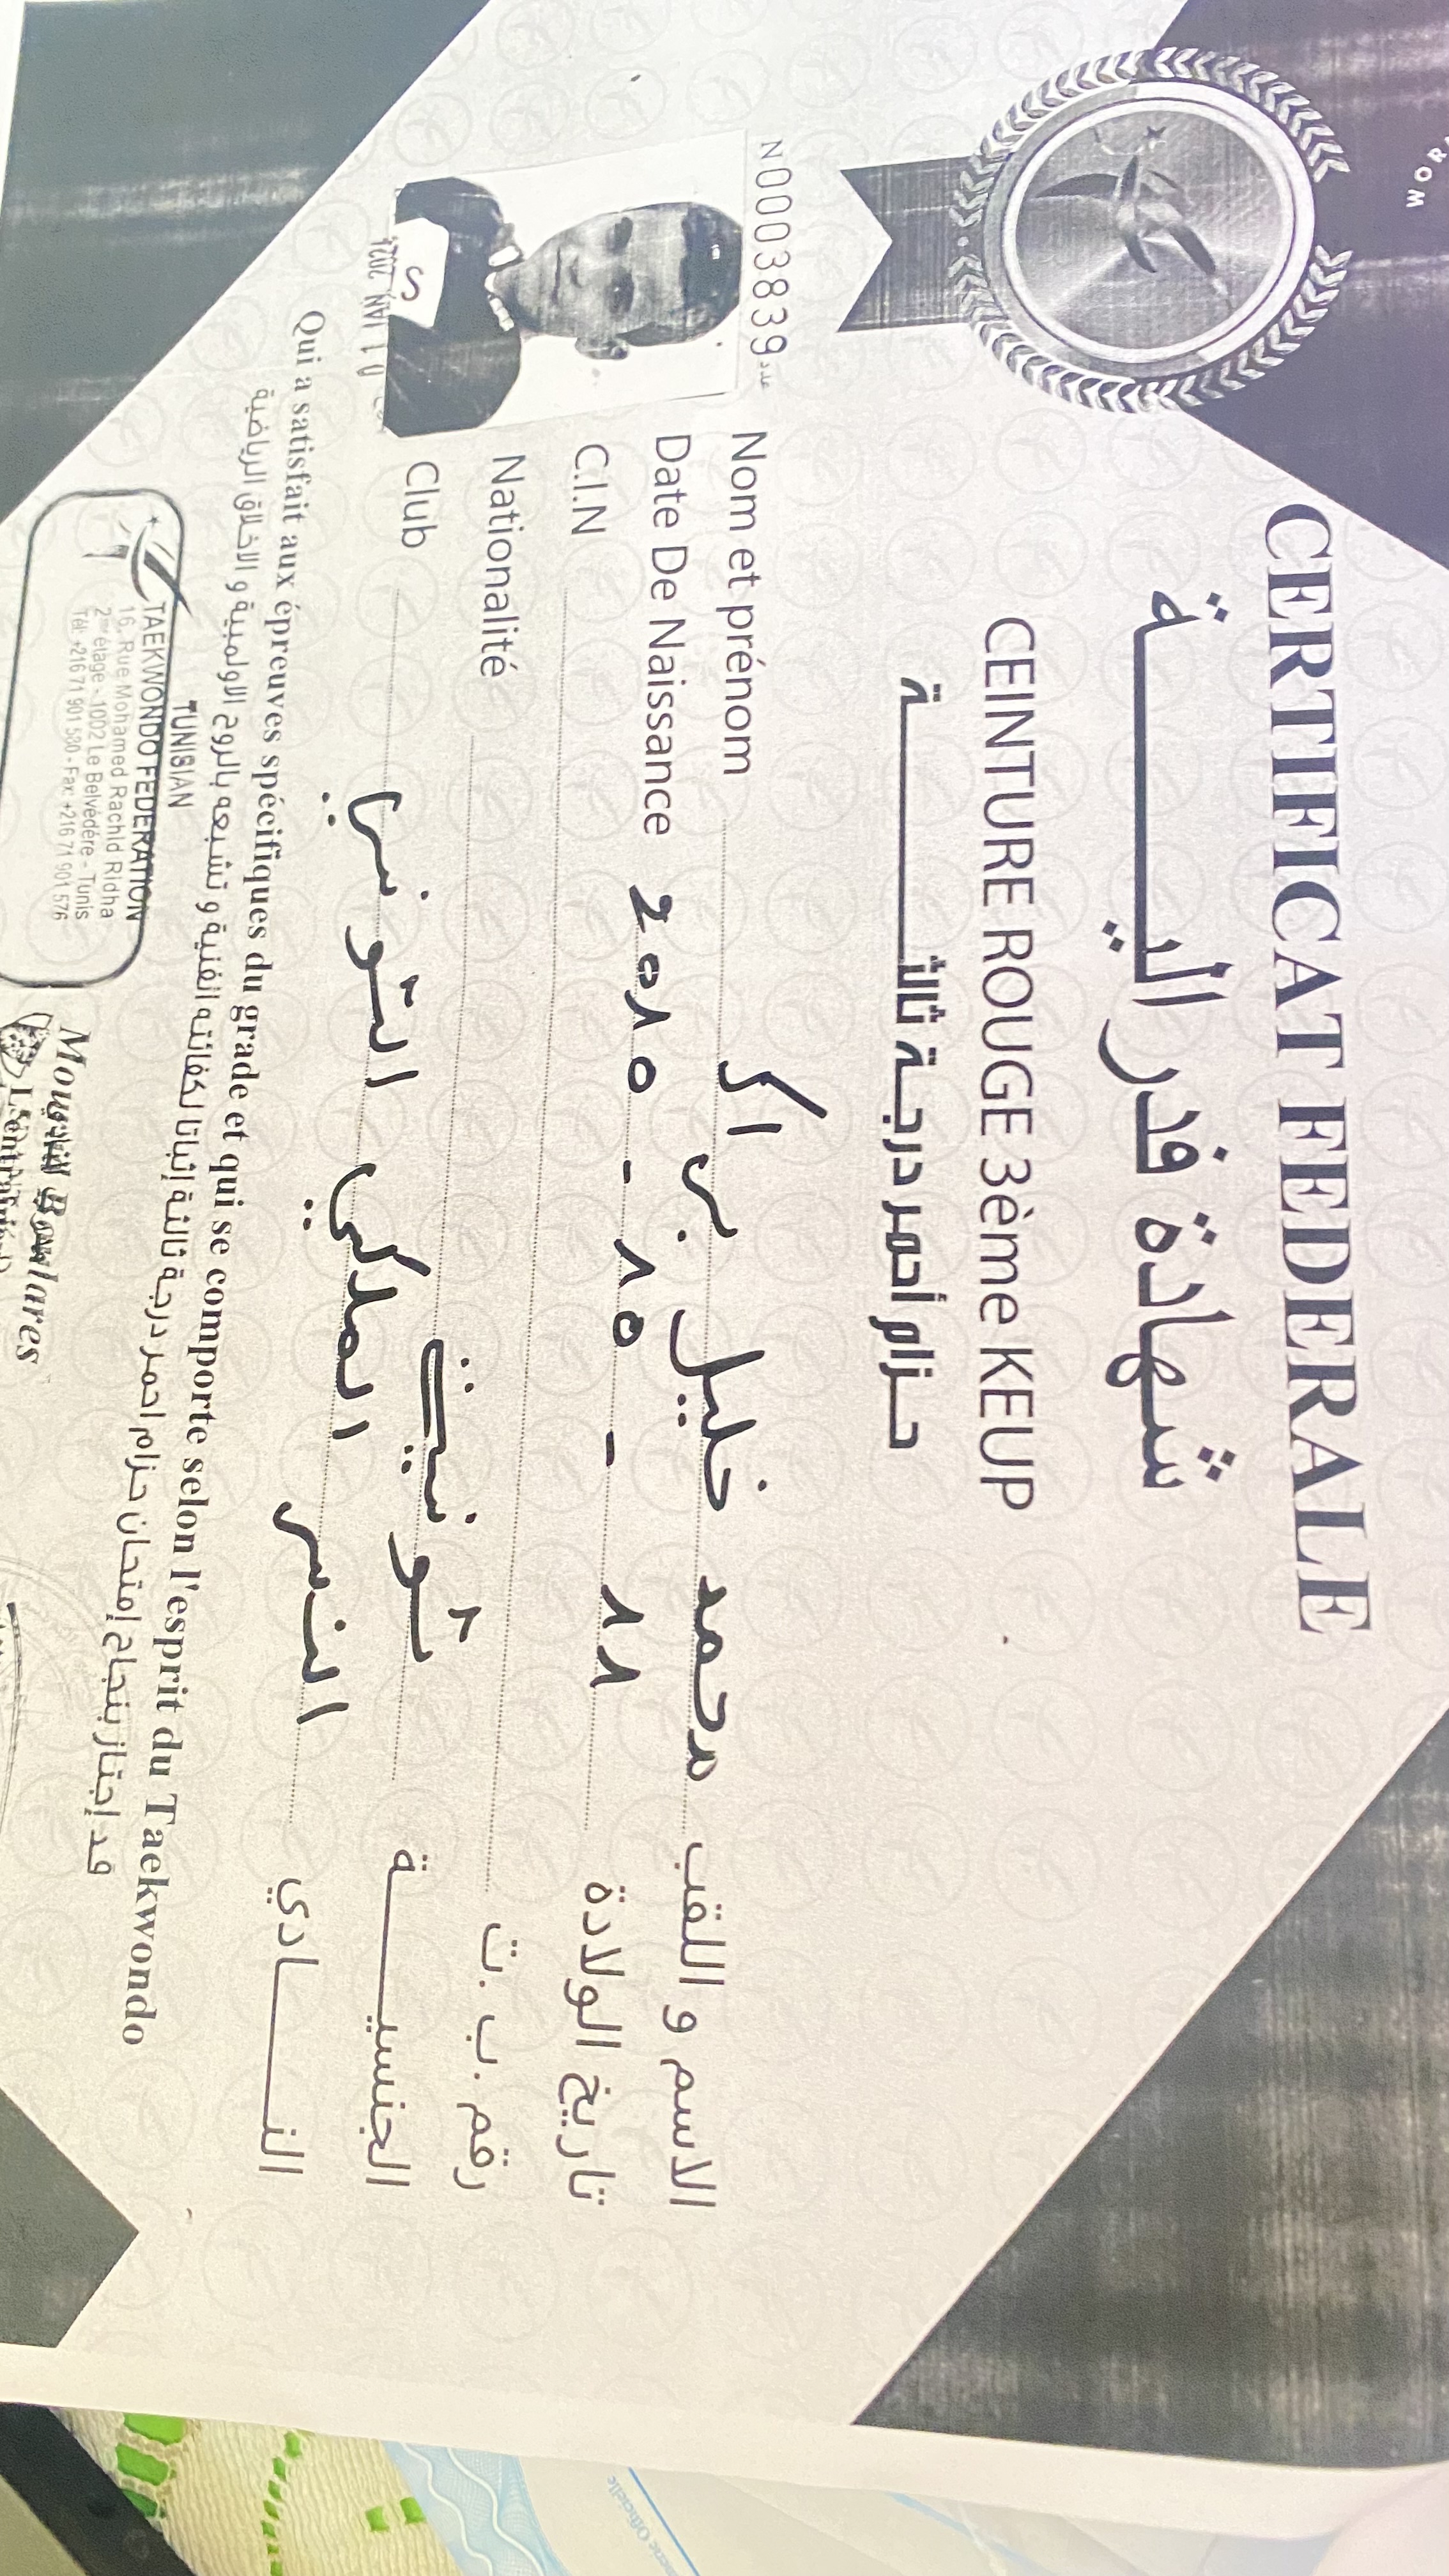 WOR
CERTIFICAT FEDERALE
شهادة فدرالية
CEINTURE ROUGE 3ème KEUP
حزام أحمر درجة ثالثة
N0003839 عدد
Nom et prénom محمد خليل الاسم و اللقب
Date De Naissance 2010 - 10 - 11 تاريخ الولادة
C.I.N رقم ب. ت.
Nationalité تونسية الجنسية
Club النسر الملكي التونسي النادي
S
Qui a satisfait aux épreuves spécifiques du grade et qui se comporte selon l'esprit du Taekwondo
قد إجتاز بنجاح إمتحان حزام احمر درجة ثالثة إثباتا لكفائته الفنية و تشبعه بالروح الاولمبية و الاخلاق الرياضية
TUNISIAN
TAEKWONDO FEDERATION
16, Rue Mohamed Rachid Ridha
2ème étage - 1002 Le Belvédére - Tunis
Tél: +216 71 901 580 - Fax: +216 71 901 576